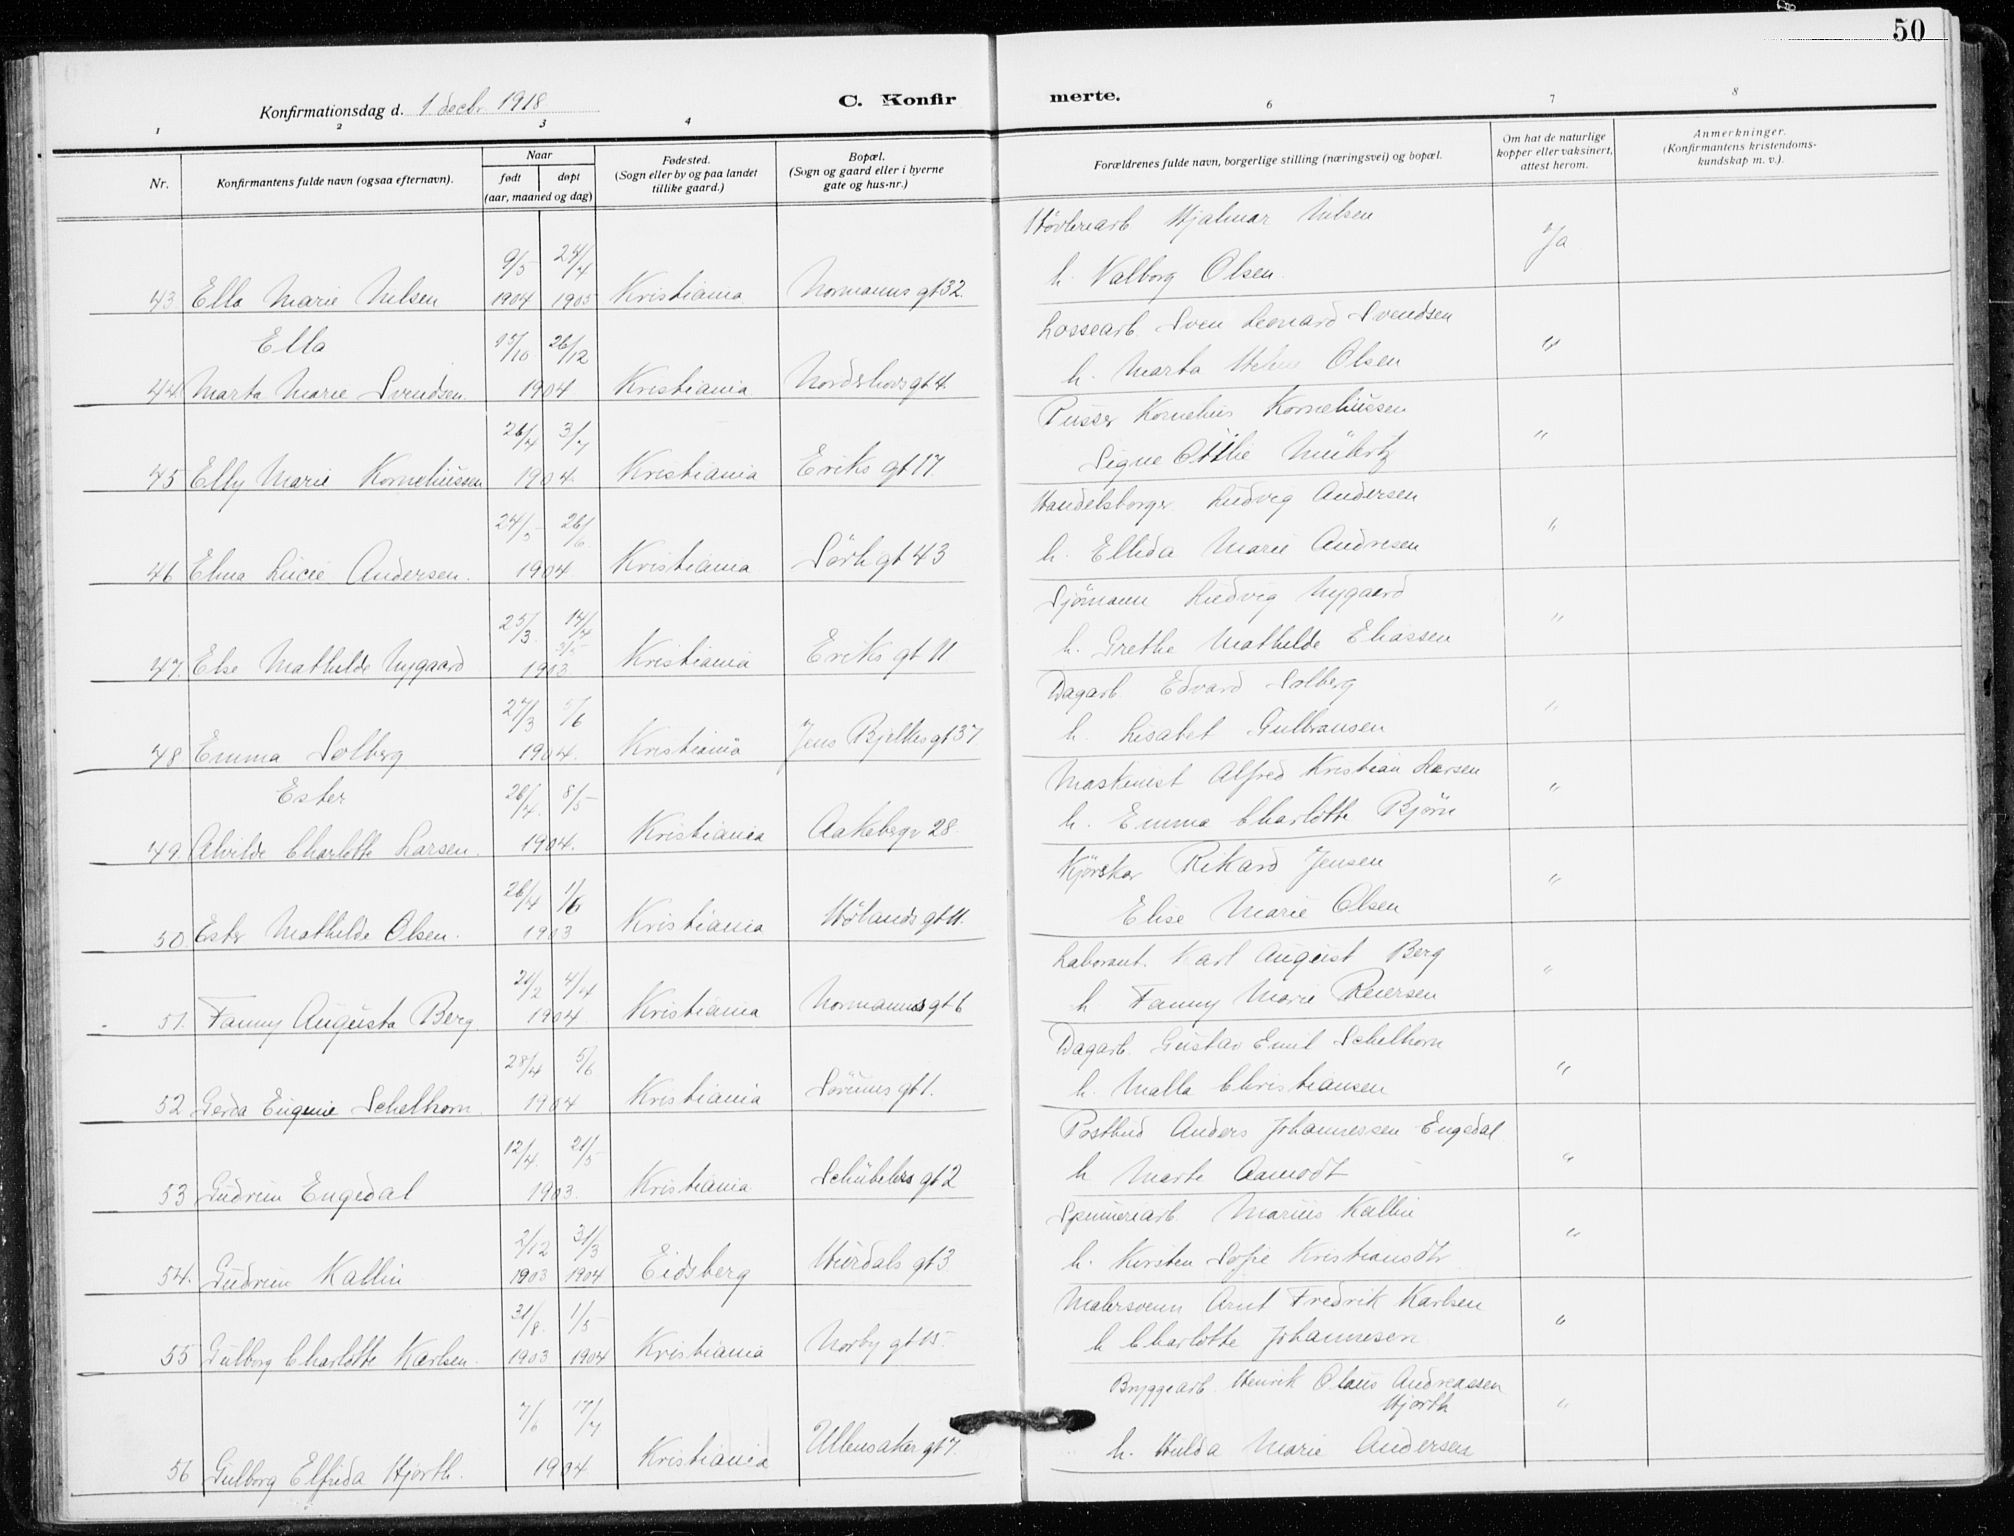 50
Konfirmationsdag d. 1 decbr 1918
C. Konfir merte.
1 2 3 4 6 7 8
Nr.
Konfirmantens fulde navn (ogsaa efternavn).
Naar
født døpt
(aar, maaned og dag)
Fødested.
(Sogn eller by og paa landet
tillike gaard.)
Bopæl.
(Sogn og gaard eller i byerne
gate og hus-nr.)
Forældrenes fulde navn, borgerlige stilling (næringsvei) og bopæl.
Om hat de naturlige
kopper eller vaksinert,
attest herom.
Anmerkninger.
(Konfirmantens kristendoms-
kundskap m. v.).
Høvleriarb Hjalmar Nilsen
9/5 24/4 Ja
h. Valborg Olsen.
43 Ella Marie Nilsen 1904 1905 Kristiania Normanns gt 32.
Lossearb. Sven Leonard Svendsen
Ella 15/10 26/12 "
h. Marta Olsen
44. Marta Marie Svendsen. 1904 Kristiania Nordshovs gt 4.
Pusser Kornelius Korneliussen
26/4 3/7 "
Signe Ottilie
45 Elly Marie Korneliussen 1904. Kristiania Eriks gt 17
Handelsborger Ludvig Andersen
24/5 26/6 "
h. Ellida Marie Andresen
46 Elma Lucie Andersen. 1904 Kristiania Sörli gt 43
Sjömann Ludvig Nygaard
25/3. 14/4 "
3/5
h. Grethe Mathilde Eliassen
47. Else Mathilde Nygaard 1903 Kristiania Eriks gt 11
Dagarb. Edvard Solberg
27/3 5/6 "
h. Lisabet Gulbransen
48 Emma Solberg 1904. Kristiania Jens Bjelkes gt 37
Maskinist Alfred Kristian Larsen
Ester 26/4. 8/5 "
h. Emma Charlotte Björn
49. Alvilde Charlotte Larsen. 1904. Kristiania Aakebergv 28.
Kjörskar Rikard Jensen
26/4 1/6 "
Elise Marie Olsen
50 Estr Mathilde Olsen. 1903 Kristiania Hølands gt 11.
Laborant. Karl August Berg
21/2 4/4 "
h Fanny Marie Reiersen
51. Fanny Augusta Berg. 1904 Kristiania Normanns gt 6
Dagarb. Gustav Emil Schelhorn
28/4 5/6 "
h. Malla Christiansen
52 Gerda Eugenie Schelhorn. 1904 Kristiania Sörums gt 1.
Postbud Anders Johannessen Engedal
12/4. 21/5 "
h Marte Aamodt
53 Gudrun Engedal 1903. Kristiania Schübelers gt 2
Spinneriarb. Marius Kallin
2/12 31/3 "
h. Kirsten Sofie Kristiansdtr
54. Gudrun Kallin 1903 1904 Eidsberg Hurdals gt 3
Malersvenn Arnt Fredrik Karlsen
31/8. 1/5 "
h Charlotte Johannesen
55 Gulborg Charlotte Karlsen. 1903 1904 Kristiania Norby gt 15
Bryggearb. Henrik Olaus Andreassen
Hjorth
7/6 17/7 "
h. Hulda Marie Andersen
56 Gulborg Elfrida Hjorth. 1904 Kristiania Ullensaker gt 7.